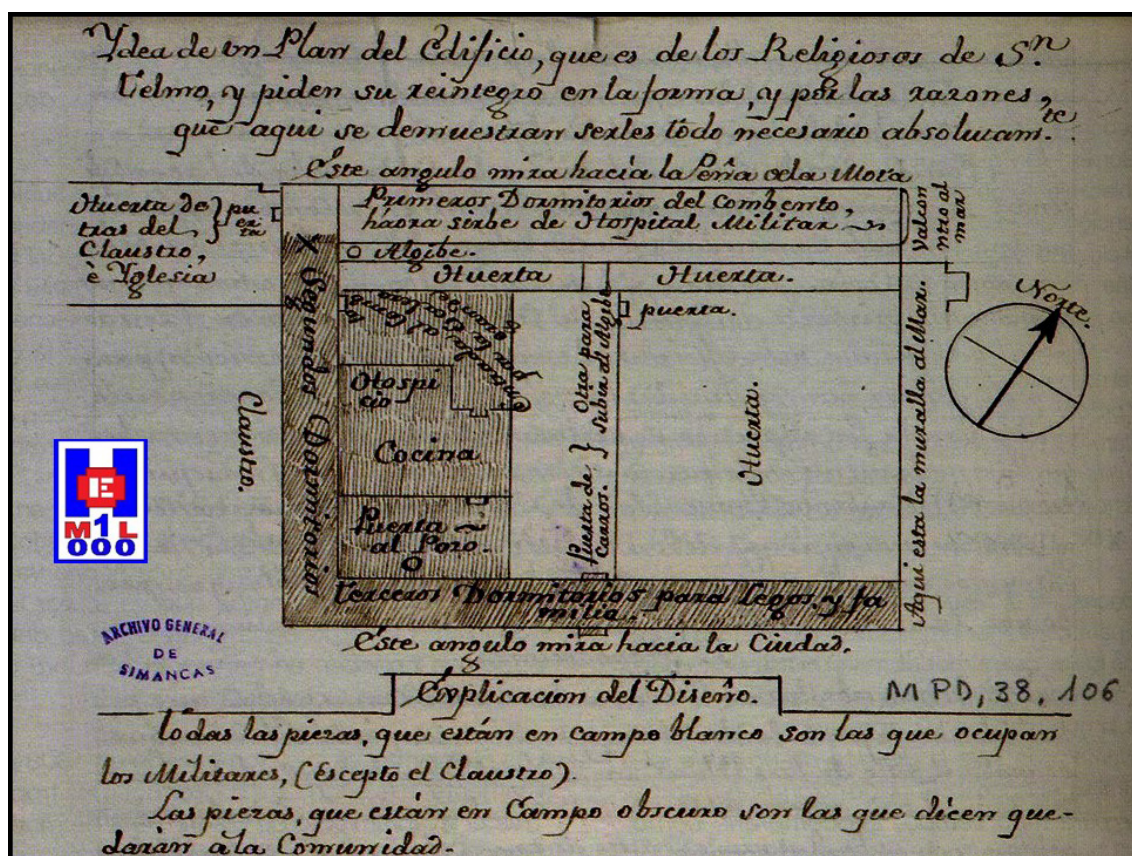 Ydea de vn Plan del Edificio, que es de los Religiosos de Sⁿ.
Telmo, y piden su reintegro en la forma, y por las razones,
que aqui se demuestran serles todo necesario absolutam.te
Este angulo mira hacia la Peña de la Mota
Huerta de
tras del
Claustro,
è Yglesia
pu
erta
Primeros Dormitorios del Combento,
háora sirbe de Hospital Militar.
Valcon
nto al
mar
Algibe.
Huerta
Huerta.
X Segundos Dormitorios
puerta.
Otra para
subir al Algibe
Hospi
cio
Cocina
Puerta
al Pozo.
Puerta de
Carros.
Huerta.
Claustro.
Aqui esta la muralla al Mar.
Norte.
Terceros Dormitorios para Legos, y fa
milia.
Este angulo mira hacia la Ciudad.
E
M1L
000
ARCHIVO GENERAL
DE
SIMANCAS
Explicacion del Diseño.
MPD, 38, 106
Todas las piezas, que están en campo blanco son las que ocupan
los Militares, (Escepto el Claustro).
Las piezas, que están en Campo obscuro son las que dicen que-
darán à la Comunidad.